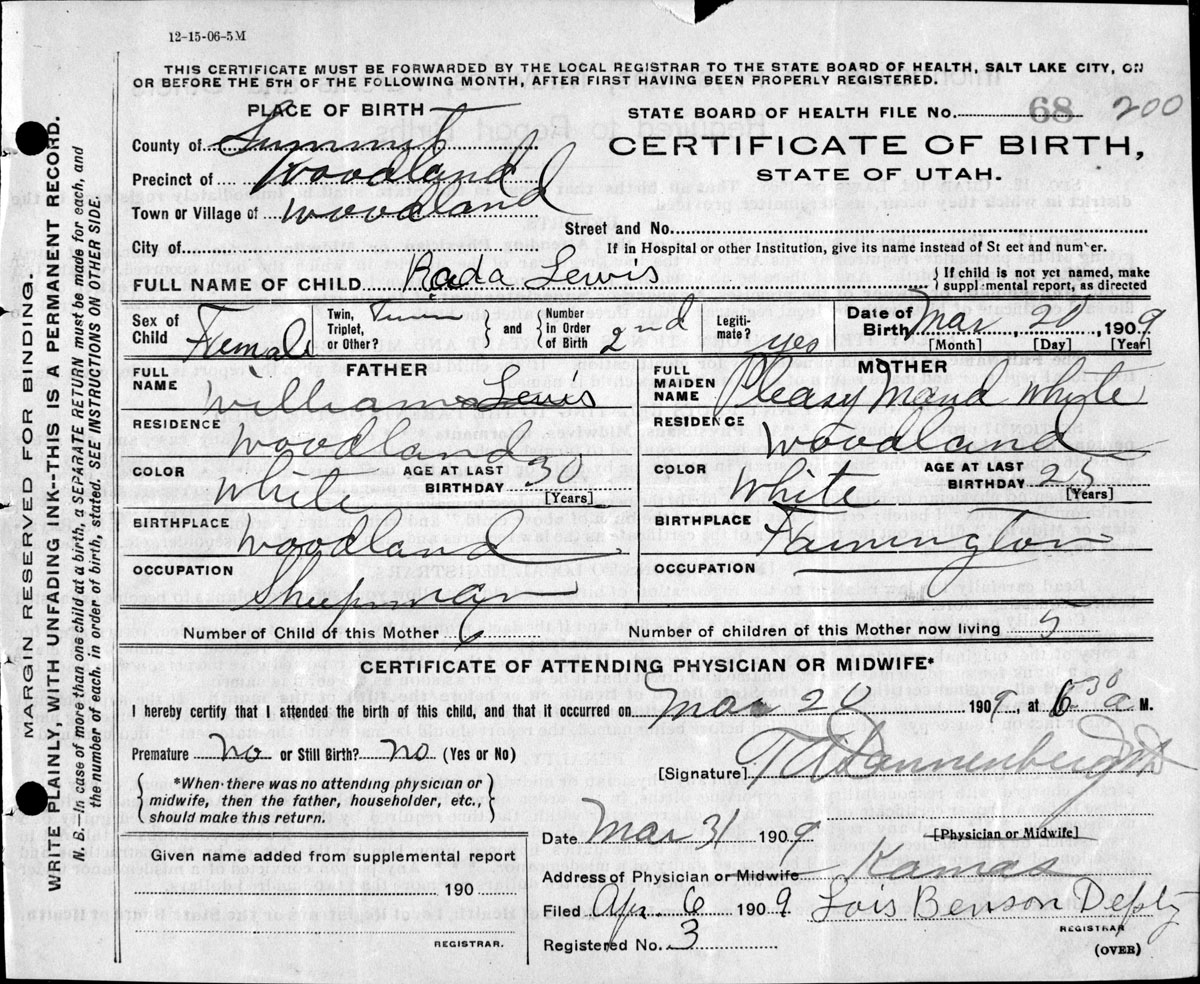 12-15-06-5M
THIS CERTIFICATE MUST BE FORWARDED BY THE LOCAL REGISTRAR TO THE STATE BOARD OF HEALTH, SALT LAKE CITY, ON
OR BEFORE THE 5TH OF THE FOLLOWING MONTH, AFTER FIRST HAVING BEEN PROPERLY REGISTERED.
PLACE OF BIRTH
STATE BOARD OF HEALTH FILE No. 68 200
County of Summit
CERTIFICATE OF BIRTH,
Precinct of Woodland
STATE OF UTAH.
Town or Village of Woodland
Street and No.
City of
If in Hospital or other Institution, give its name instead of St eet and num er.
FULL NAME OF CHILD Rada Lewis { If child is not yet named, make
suppl mental report, as directed
Sex of Child Female
Twin, Triplet, or Other? Twin
{ and } Number in Order of Birth 2nd
Legitimate? yes
Date of Birth Mar 1909
[Month] [Day] [Year]
FATHER
FULL NAME William Lewis
RESIDENCE Woodland
COLOR White
AGE AT LAST BIRTHDAY 30
[Years]
BIRTHPLACE Woodland
OCCUPATION Sheepman
MOTHER
FULL MAIDEN NAME Pleasy Maud White
RESIDENCE Woodland
COLOR White
AGE AT LAST BIRTHDAY 25
[Years]
BIRTHPLACE Farmington
OCCUPATION
Number of Child of this Mother 6
Number of children of this Mother now living 5
CERTIFICATE OF ATTENDING PHYSICIAN OR MIDWIFE*
I hereby certify that I attended the birth of this child, and that it occurred on Mar 1909, at 6 30 a M.
Premature no or Still Birth? no (Yes or No)
[Signature] Dannenberg
*When there was no attending physician or
midwife, then the father, householder, etc.,
should make this return.
Date Mar 31 1909
[Physician or Midwife]
Given name added from supplemental report
190
REGISTRAR.
Address of Physician or Midwife Kamas
Filed Apr 6 1909 Lois Benson Depty
REGISTRAR
Registered No. 3
(OVER)
MARGIN RESERVED FOR BINDING.
WRITE PLAINLY WITH UNFADING INK--THIS IS A PERMANENT RECORD.
N. B.—In case of more than one child at a birth, a SEPARATE RETURN must be made for each, and
the number of each, in order of birth, stated. SEE INSTRUCTIONS ON OTHER SIDE.